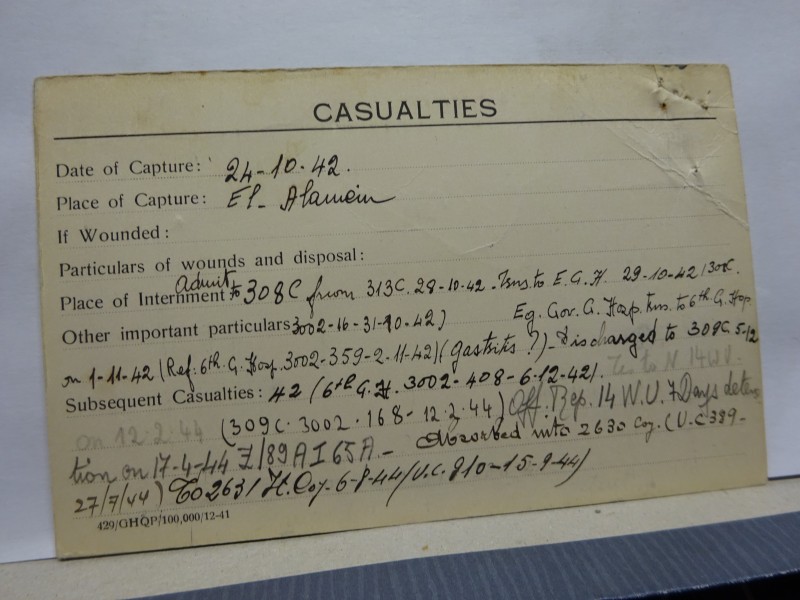 CASUALTIES
Date of Capture: 24-10-42.
Place of Capture: El-Alamein
If Wounded:
Particulars of wounds and disposal:
Admit
Place of Internment: to 308C from 313C. 28-10-42. Trns. to E.G.H. 29-10-42 (308C.
Other important particulars 3002-16-31-10-42) Eg. Gov. G. Hosp. trns. to 6th. G. Hosp
on 1-11-42 (Ref: 6th. G. Hosp. 3002-359-2-11-42) (Gastritis ?) - Discharged to 309C. 5-12
Subsequent Casualties: 42 (6th G.H. 3002-408-6-12-42). to N 14 W.U.
on 12.2.44 (309C. 3002.168-12.2.44) Off. Rep. 14 W.U. 7 Days deten
tion on 17-4-44 Z/89 A I 65A.- Absorbed into 2630 Coy. (U.C 339-
27/7/44) To 2631 H. Coy-6-8-44 (U.C. 810-15-9-44)
429/GHQP/100,000/12-41